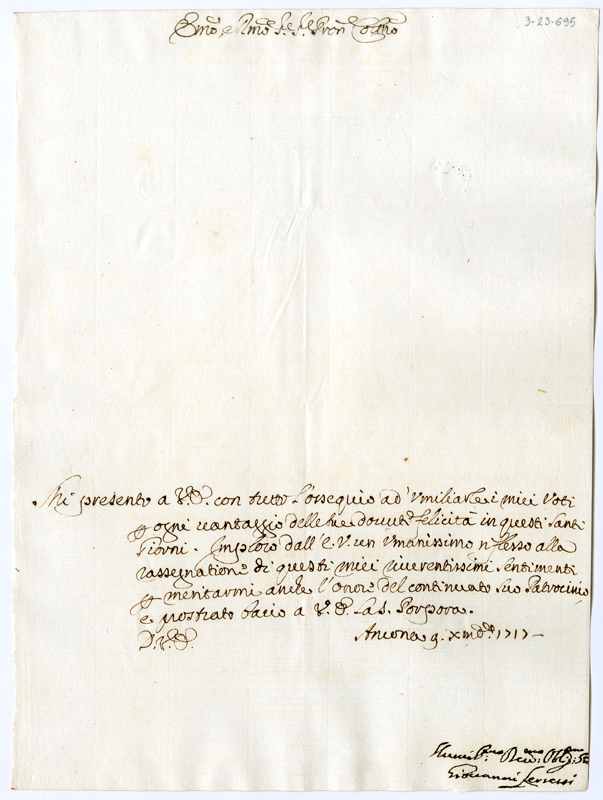 3-23-695
Emo e Rmo Sig.e Sig.e Pron Coll̃mo
Mi presento a V.E. con tutto l'ossequio ad Vmiliarle i miei Voti
p ogni uantaggio delle sue douute felicità in questi Santi
Giorni. Imploro dall'E.V. un Vmanissimo riflesso alla
rassegnatione di questi miei riuerentissimi sentimenti
p meritarmi anche l'onore del continuato suo Patrocinio,
e prostrato bacio a V.E. la S. Porpora.
D.V.E. Ancona 9. Xmbre 1717
Humilmo Deumo Obligmo Se
Giouanni